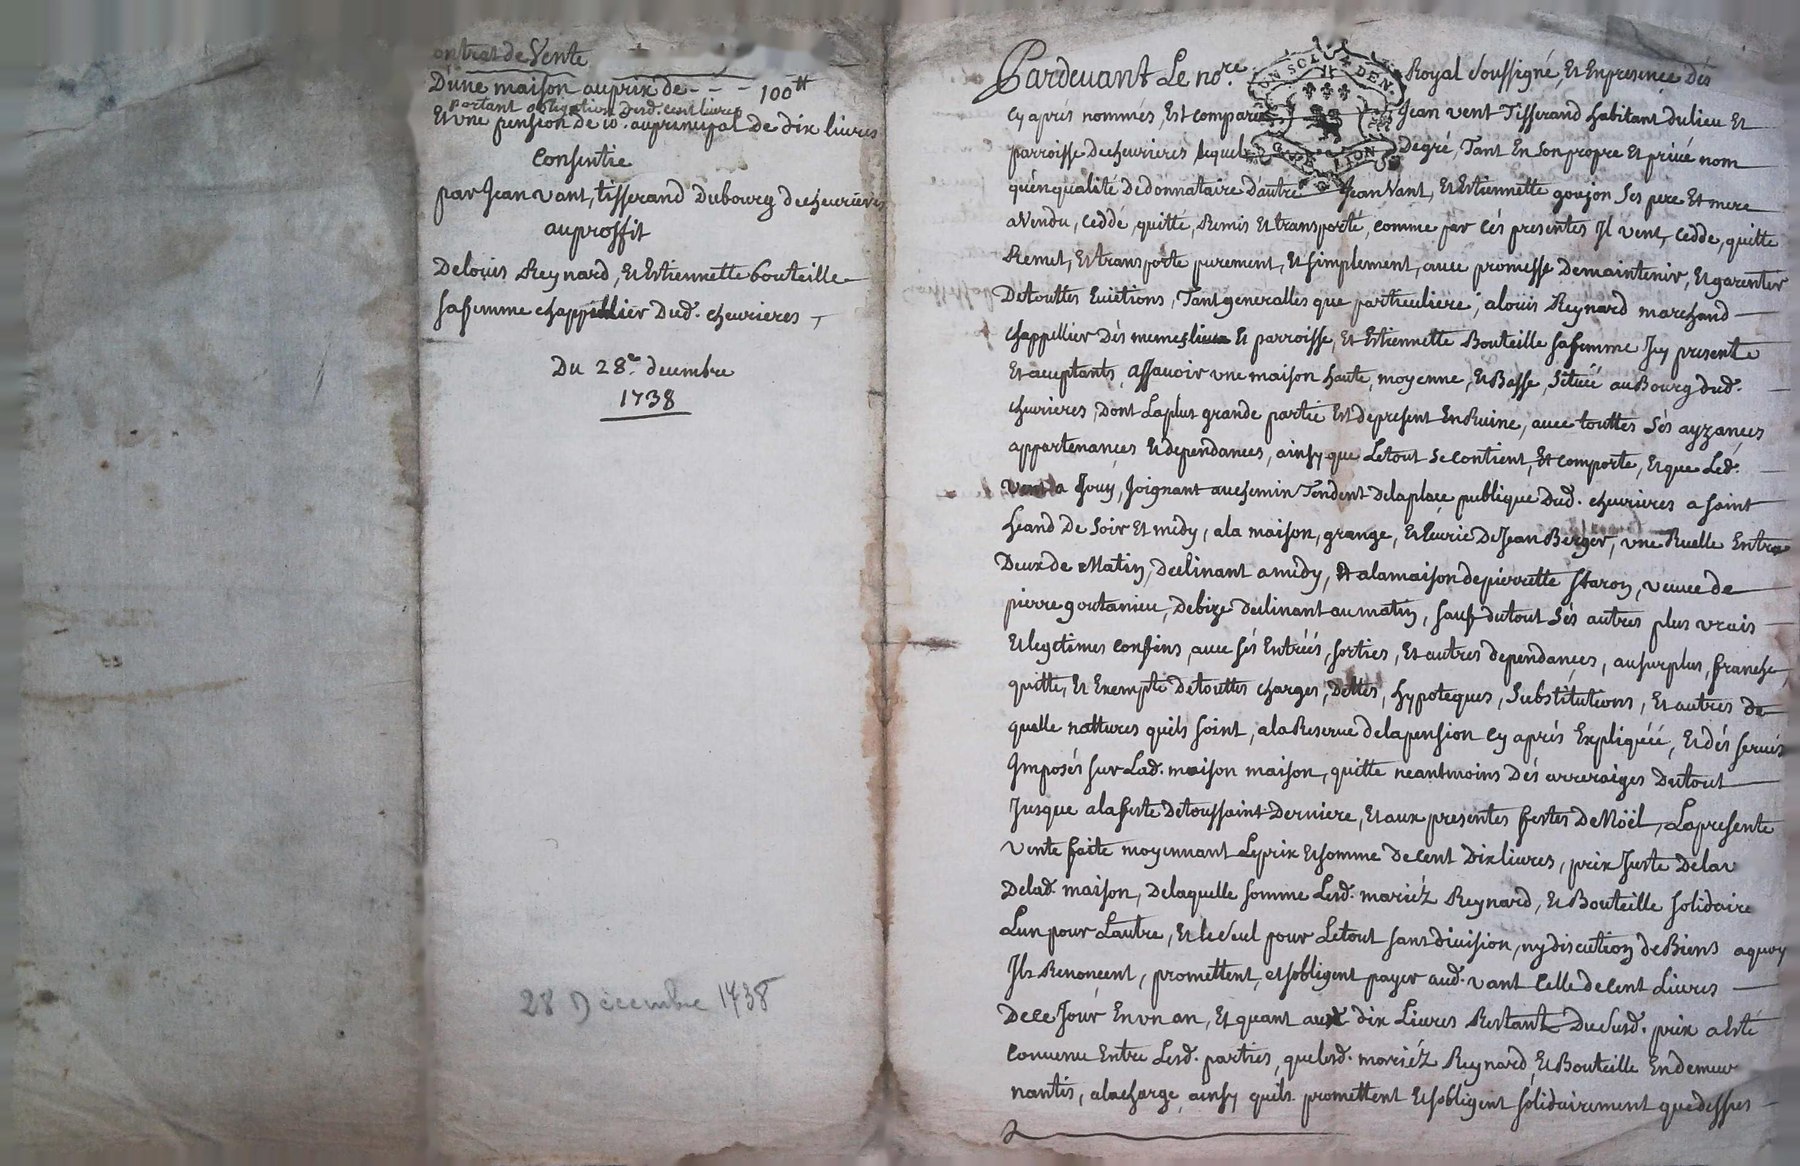 ontrat de Vente
D'une maison au prix de - - - 100ᵗᵗ
portant obligation Dusd. cent livres
Et une pension de 10ˢ. au principal de dix livres
Consentie
par Jean vant, tisserand Du bourg de cheurieres
au proffit
De loüis Reynard, Et Estiennette bouteille
sa femme chappellier Dud. cheurieres
Du 28.ᵉ decembre
1738
28 Décembre 1738
Pardevant Le noʳᵉ. Royal soussigné, Et En presence Dés
cy aprés nommés, Est comparu Jean vent Tisserand habitant du lieu Et
parroisse de cheurieres lequel De gré, Tant En son propre Et privé nom
qu'en qualité de donnataire d'autre Jean Vant, Et Estiennette goujon ses pere Et mere
a Vendu, Ceddé, quitté, Remis Et transporté, comme par Cés presentes Jl vent, Cedde, quitte
Remet, Et transporte purement, Et simplement, avec promesse De maintenir, Et garentir
De touttes Evictions, Tant generalles que particuliere, a loüis Reynard marchand
chappellier Dés memes lieux Et parroisse, Et Estiennette Bouteille sa femme Jcy presente
Et acceptants, assavoir une maison haute, moyenne, Et Basse, Située au Bourg dud.
cheurieres, dont La plus grande partie Est de present En Ruine, avec touttes Sés ayzances
appartenances Et dependances, ainsy que Le tout se contient, Et comporte, Et que Led.
Vent a Jouy, Joignant au chemin Tendent de la place publique Dud. cheurieres a saint
heand De Soir Et midy, a la maison, grange, Et Ecurie De Jean Berger, une Ruelle Entre
Deux de Matin, declinant a midy, Et a la maison de pierrette staron, veuve de
pierre goutanieu, De bize declinant au matin, sauf du tout Sés autres plus vrais
Et legitimes confins, avec sés Entréés, sorties, Et autres dependances, au surplus, franche
quitte, Et Exempte de touttes charges, Dettes, hypoteques, Substitutions, Et autres de
quelle nattures quils soint, a la Reserve de la pension cy aprés Expliquéé, Et dés servis
Jmposés sur Lad. maison maison, quitte neantmoins Dés arreraiges Du tout
Jusque a la feste De toussaint Derniere, Et aux presentes festes De Noël, La presente
Vente faite moyennant Le prix Et somme De cent Dix livres, prix Juste De la v
De lad. maison, De laquelle somme Lesd. mariéz Reynard, Et Bouteille solidaire
L'un pour L'autre, Et le seul pour Le tout sans division, ny discution de Biens a quoy
Jls Renoncent, promettent, et s'obligent payer aud. vant Celle de Cent Livres
De ce Jour En un an, Et quant aux dix Livres Restant Du susd. prix a esté
Convenu Entre Lesd. parties, que lesd. mariéz Reynard, Et Bouteille En demeur
nantis, a la charge, ainsy quils promettent Et s'obligent solidairement que desses